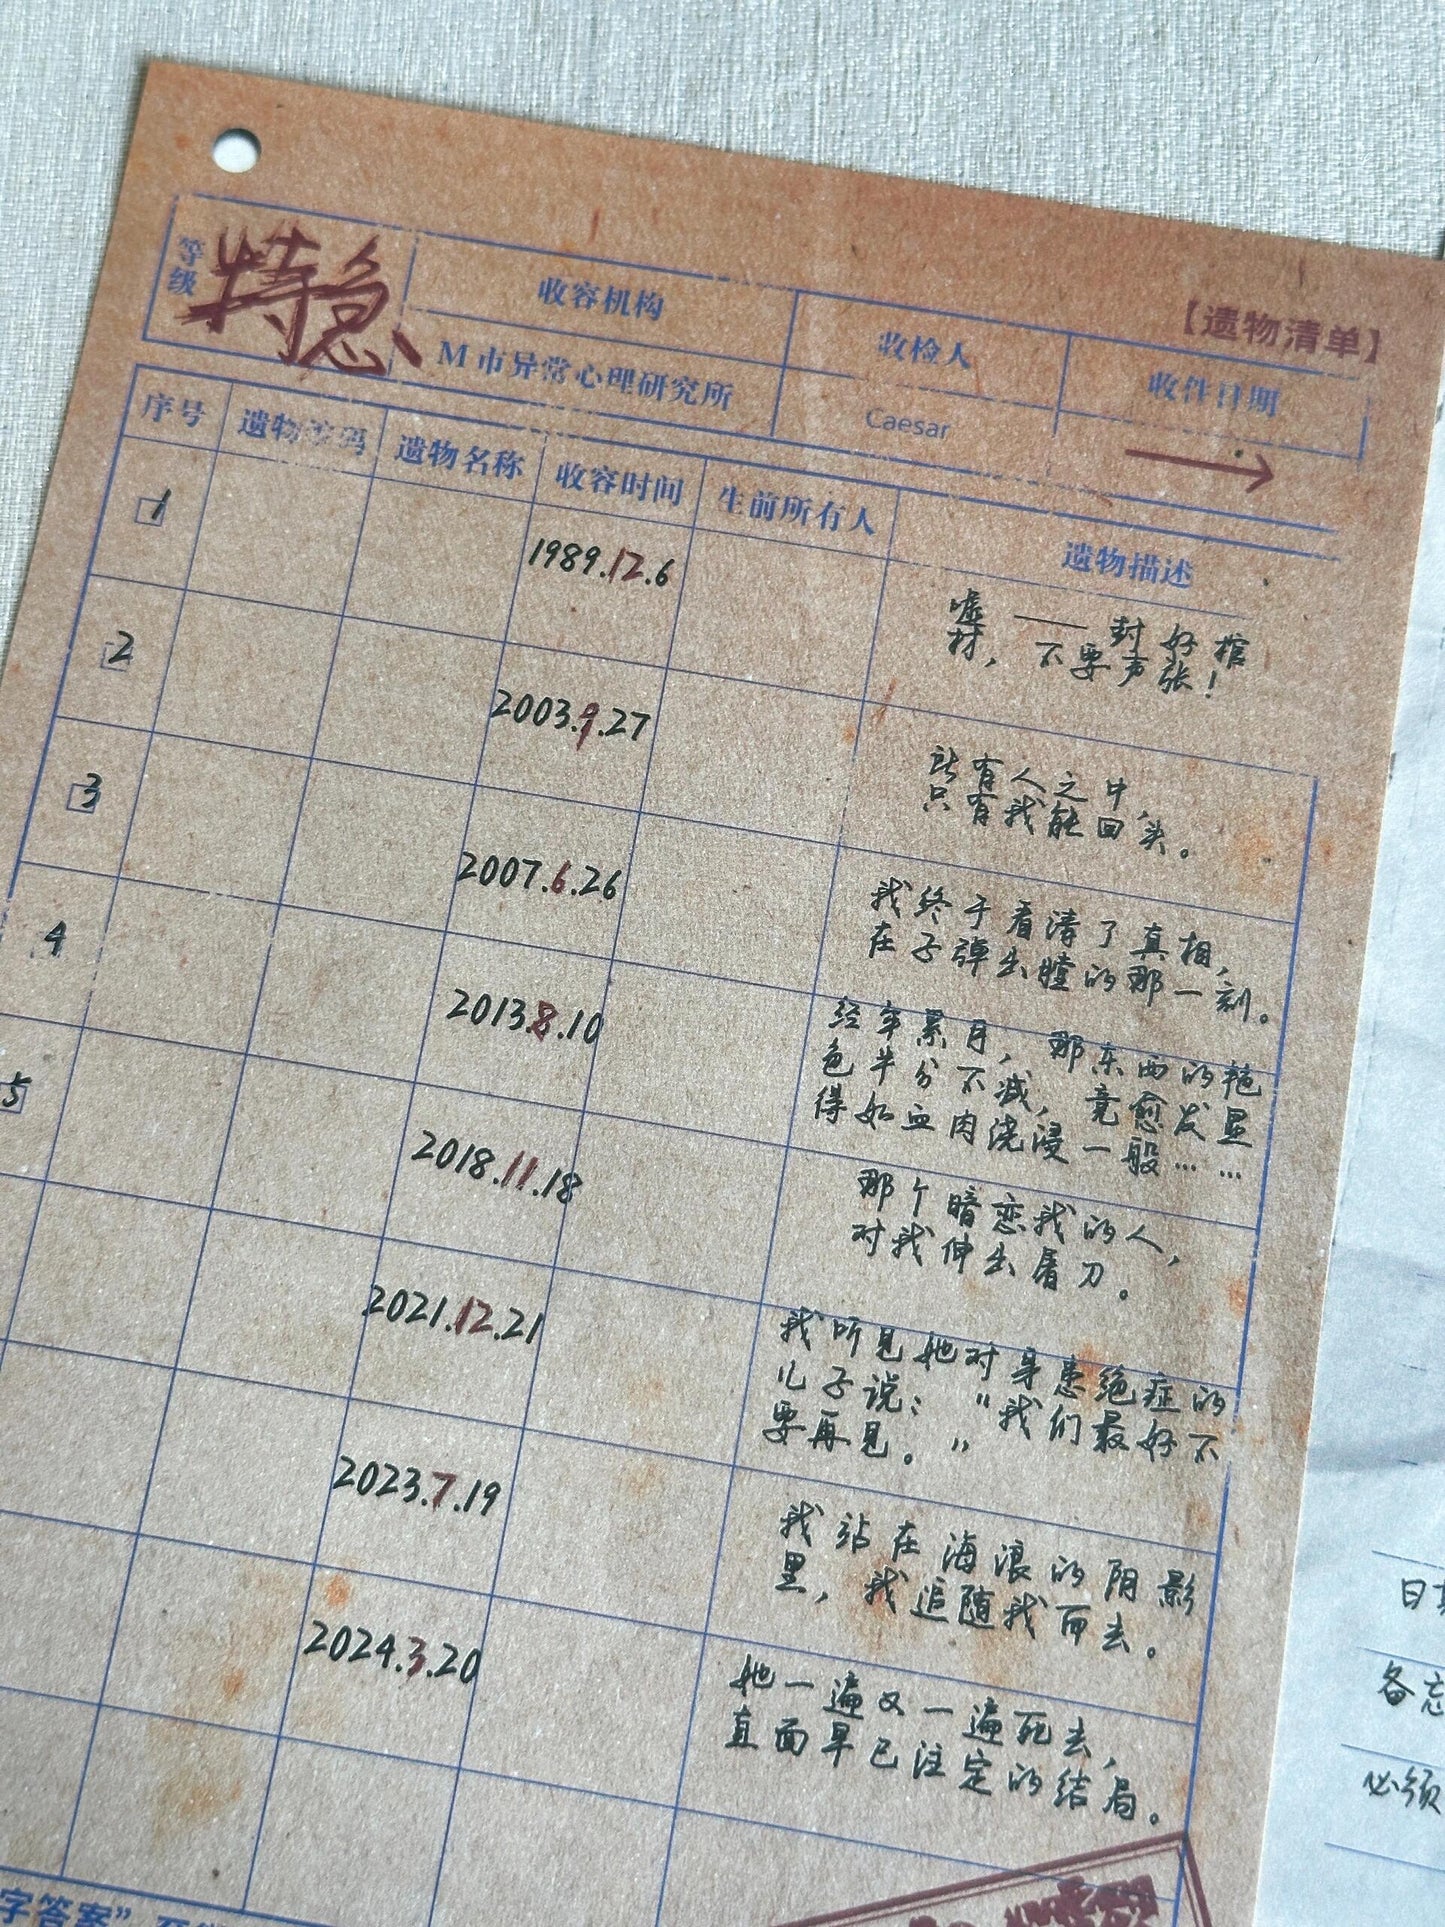 【遗物清单】
等级
特急
收容机构
收检人
收件日期
M市异常心理研究所
Caesar
序号
遗物编码
遗物名称
收容时间
生前所有人
遗物描述
1
1989.12.6
嘘——封好棺
材，不要声张！
2
2003.9.27
所有人之中，
只有我能回头。
3
2007.6.26
我终于看清了真相，
在子弹出膛的那一刻。
4
2013.8.10
经年累月，那东西的艳
色半分不减，竟愈发显
得如血肉浇浸一般……
5
2018.11.18
那个暗恋我的人，
对我伸出屠刀。
2021.12.21
我听见她对身患绝症的
儿子说：“我们最好不
要再见。”
2023.7.19
我站在海浪的阴影
里，我追随我而去。
2024.3.20
她一遍又一遍死去，
直面早已注定的结局。
字答案”
备忘
必须